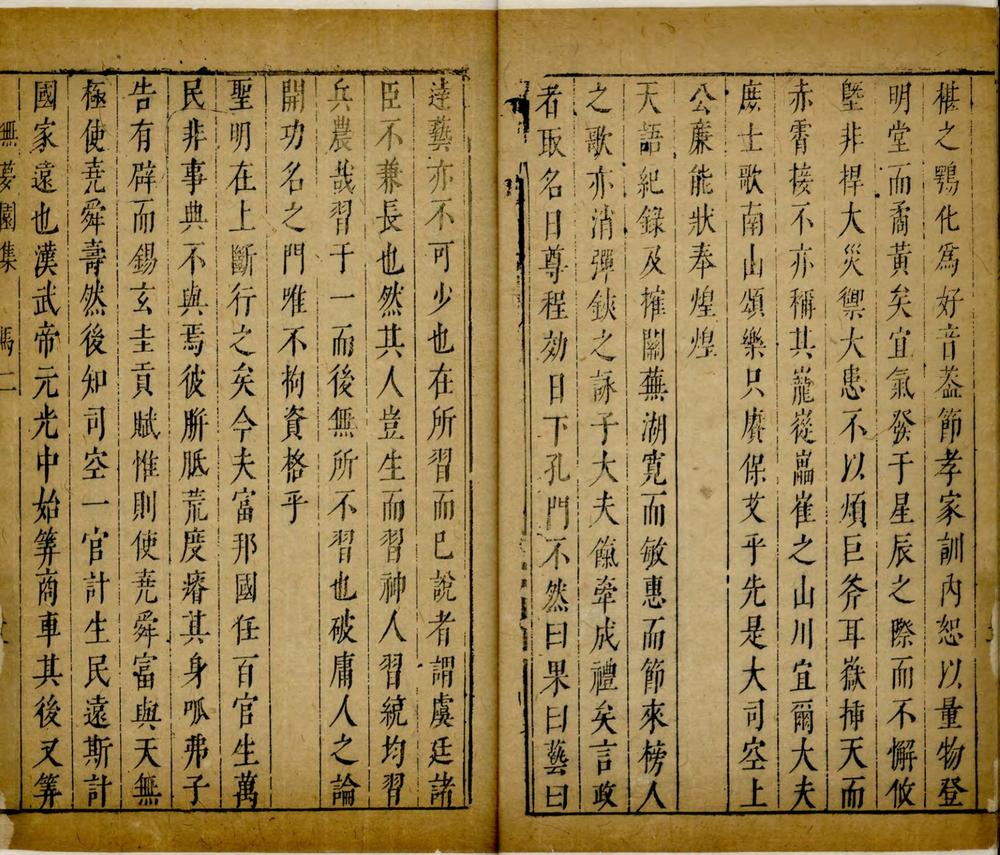 椹之鶚化爲好音葢節孝家訓內恕以量物登
明堂而矞黃矣宜氣發于星辰之際而不懈攸
塈非捍大災禦大患不以煩巨斧耳嶽挿天而
赤霄接不亦稱其巃嵸靐崔之山川宜爾大夫
庶士歌南山頌樂只賡保艾乎先是大司空上
公廉能狀奉煌煌
天語紀錄及搉關蕪湖寛而敏惠而節來榜人
之歌亦消彈鋏之詠子大夫餼牽成禮矣言政
者取名曰尊程効曰下孔門不然曰果曰藝曰
達藝亦不可少也在所習而已說者謂虞廷諸
臣不兼長也然其人豈生而習神人習統均習
兵農哉習于一而後無所不習也破庸人之論
開功名之門唯不拘資格乎
聖明在上斷行之矣今夫富那國任百官生萬
民非事典不與焉彼胼胝荒度瘠其身呱弗子
告有辟而錫玄圭貢賦惟則使堯舜富與天無
極使堯舜壽然後知司空一官計生民遠斯計
國家遠也漢武帝元光中始筭商車其後又筭
無夢園集 馬二